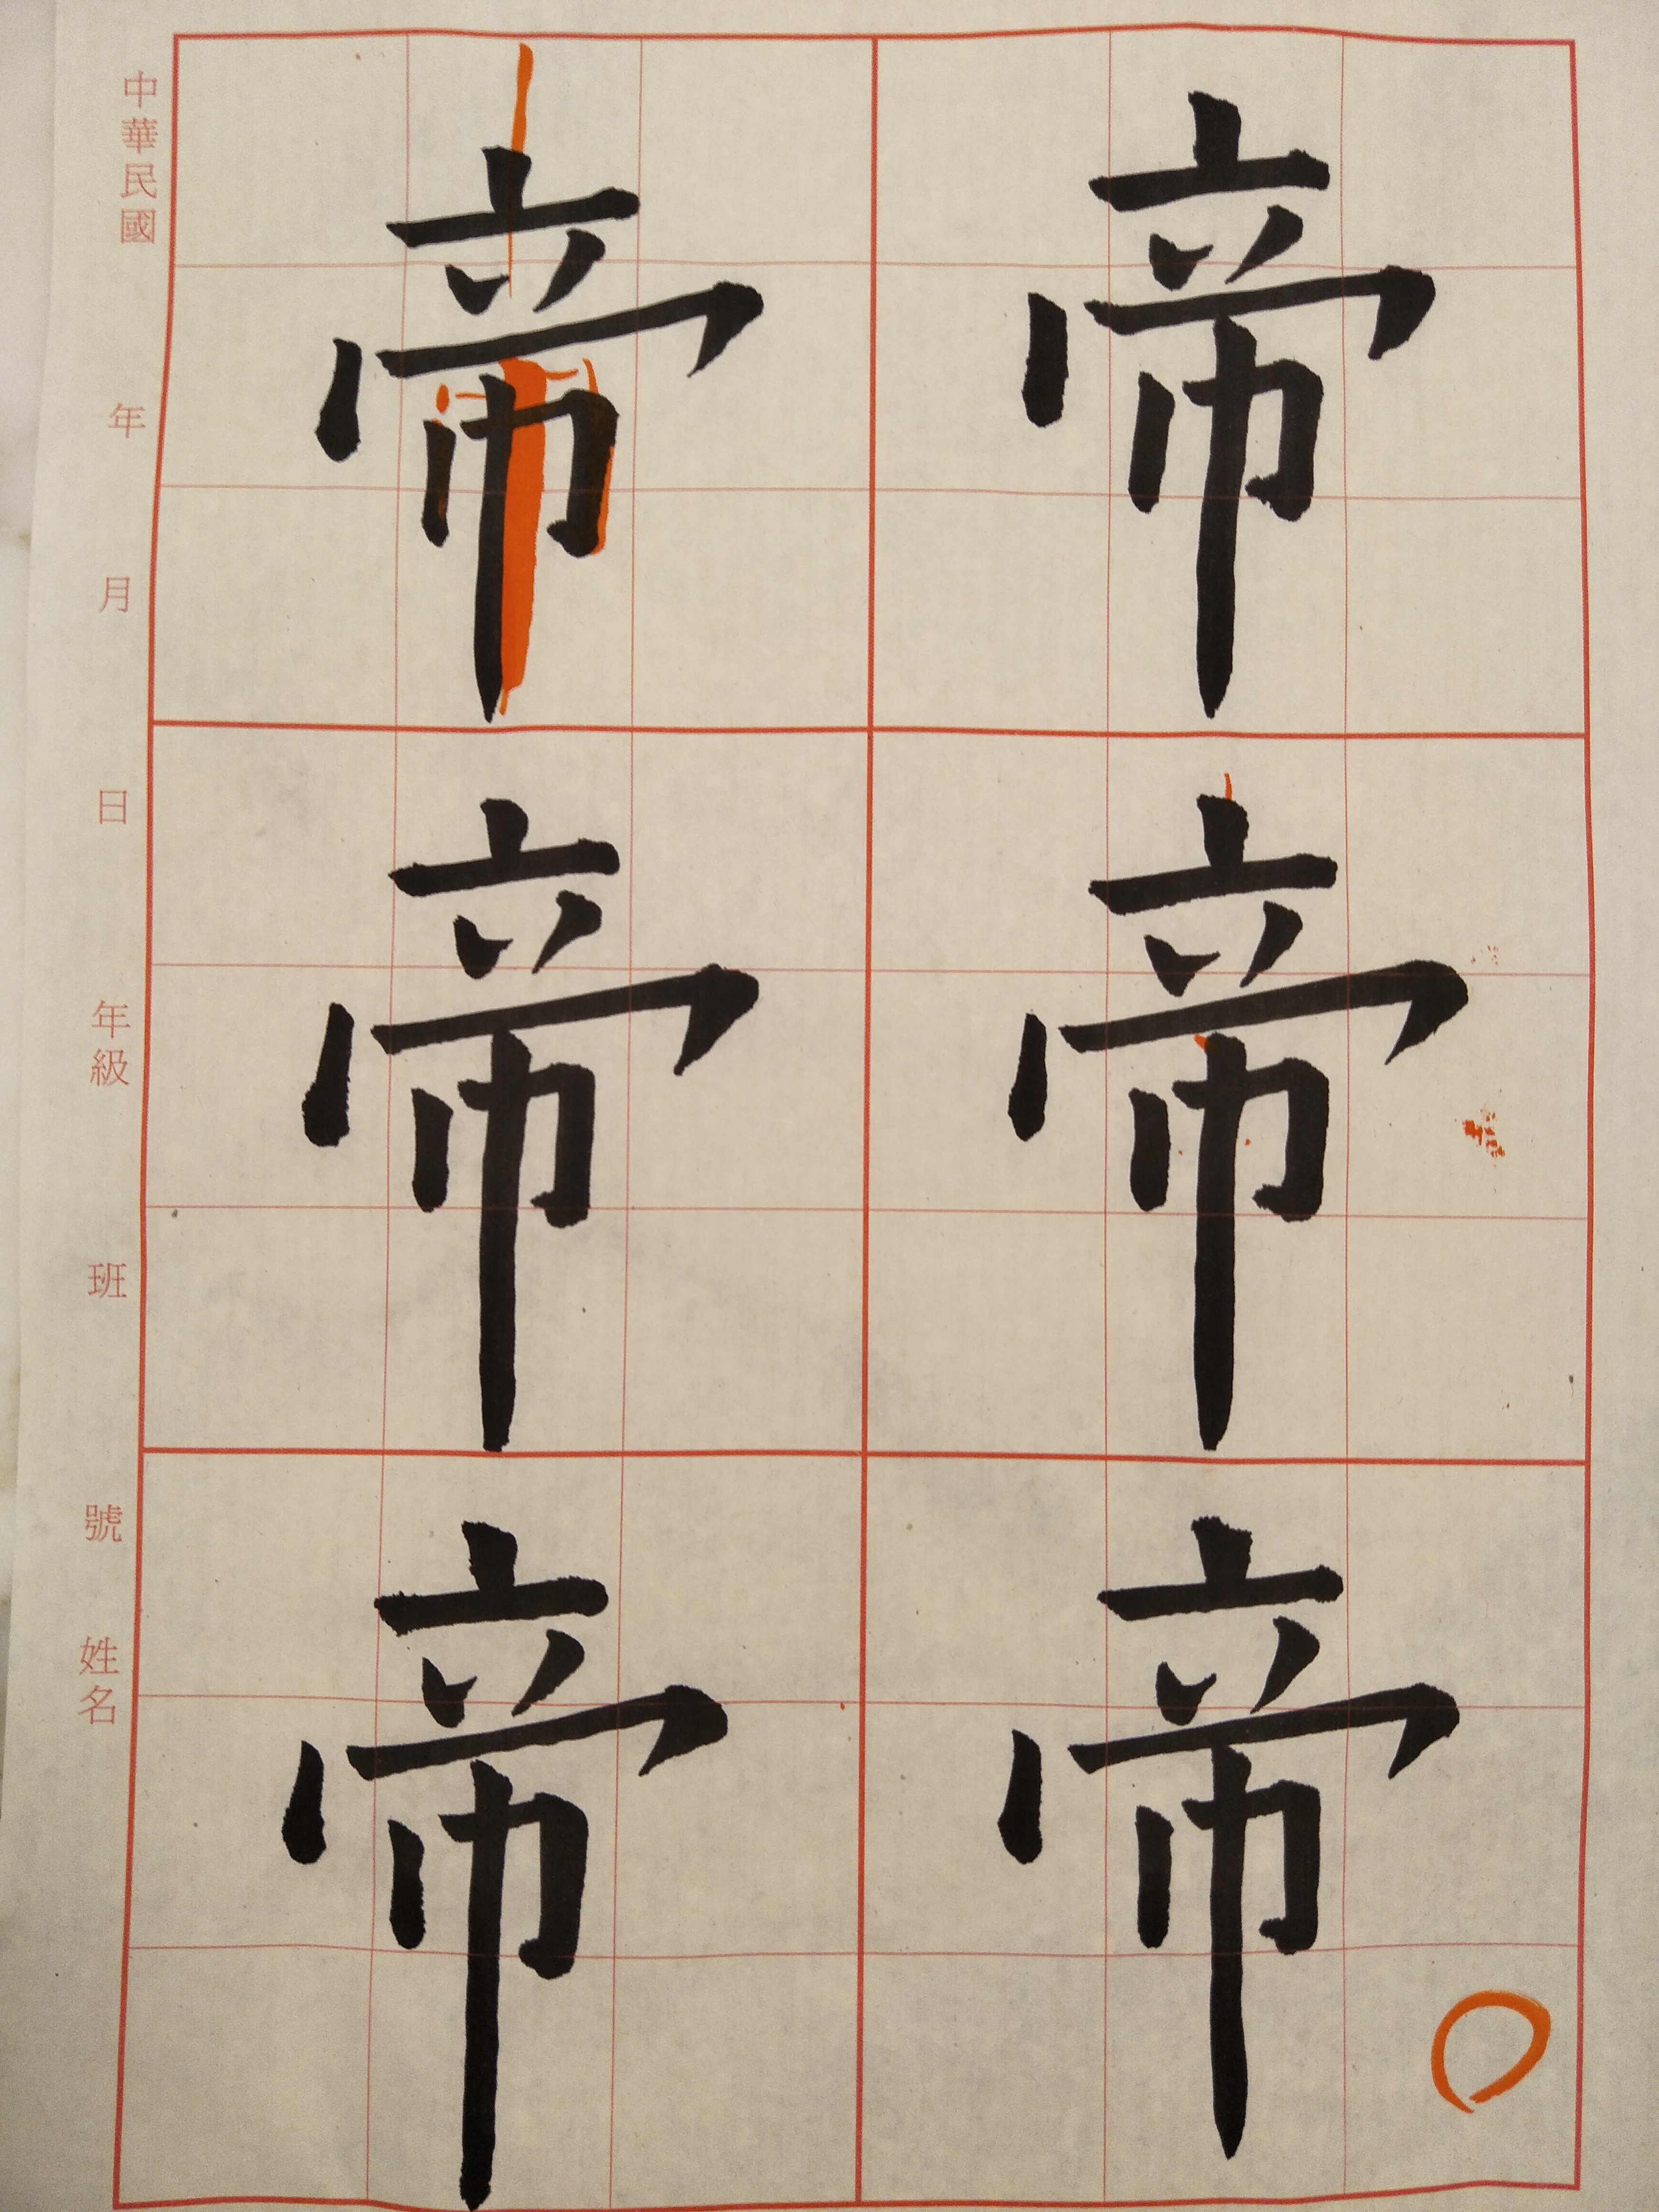 帝 帝
帝 帝
帝 帝
中華民國 年 月 日 年級 班 號 姓名